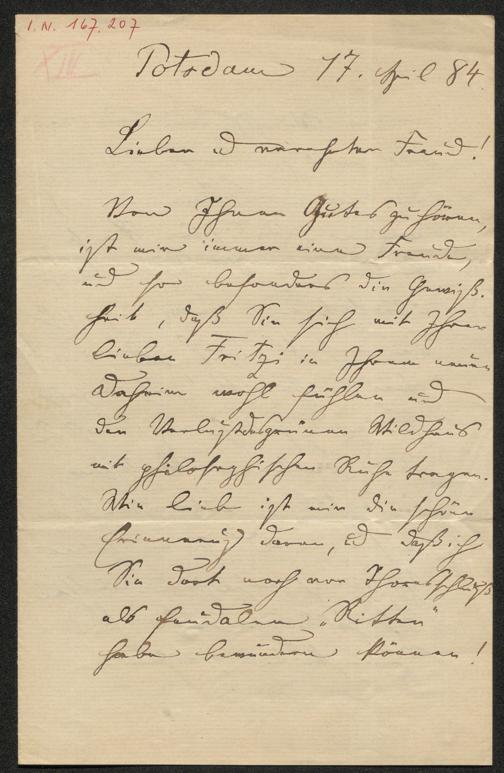 I. N. 167.207
XIII
Potsdam 17. April 84.
Lieber u verehrter Freund!
Von Ihnen Gutes zu hören,
ist mir immer eine Freude,
und so besonders die Gewiß-
heit, daß Sie sich mit Ihrer
lieben Fritzi in Ihrem neuen
Daheim wohl fühlen und
den Verlust des grünen Wildhaus
mit philosophischer Ruhe tragen.
Wie lieb ist mir die schöne
Erinnerung daran, u daß ich
Sie dort noch vor Thoresschluß
als feudalen „Ritter"
habe bewundern können!